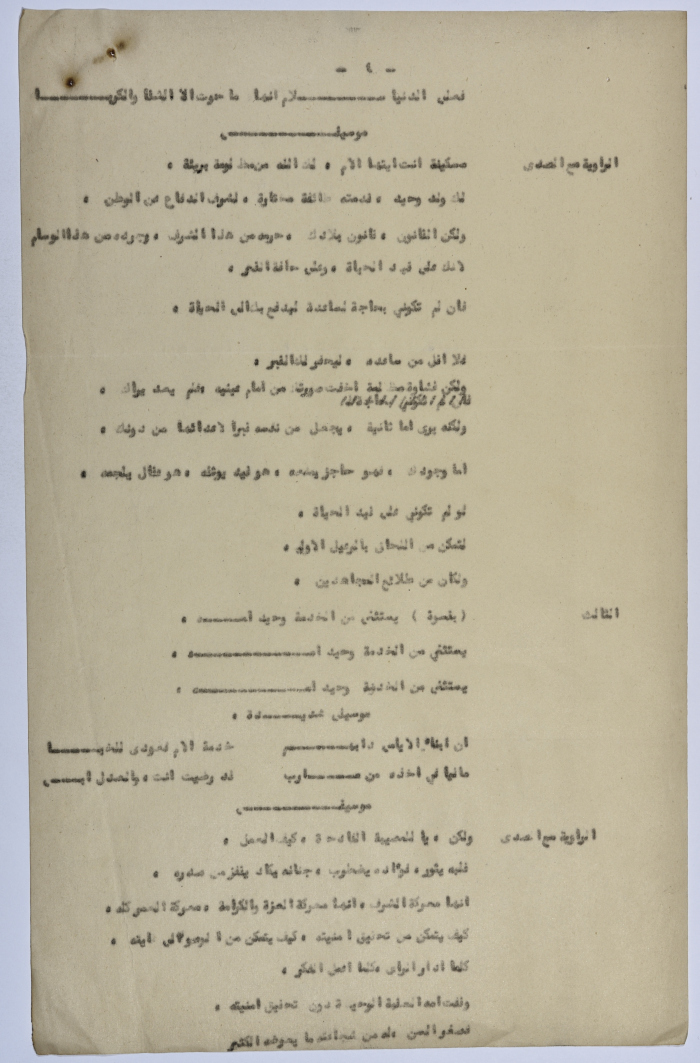 - ٤ -
فعلى الدنيا ســـــــلام انها ما حوت الا الشقا والكربـــــــا
موسيقـــــــى
الراوية مع الصدى مسكينة انت ايتها الام ، لك الله من مظلومة بريئة ،
لك ولد وحيد ، قدمته طائفة مختارة ، لشرف الدفاع عن الوطن ،
ولكن القانون ، قانون بلادك ، حرمه من هذا الشرف ، وجرده من هذا الوسام
لانك على قيد الحياة ، وعلى حافة القبر ،
فان لم تكوني بحاجة لساعده ليدفع بك الى الحياة ،
فلا اقل من ساعده ، ليحفر لك القبر ،
ولكن غشاوة مظلمة اخفت صورتك من امام عينيه فلم يعد يراك ،
ولكنه يرى اما ثانية ، يجعل من نفسه قبرا لاعدائها من دونك ،
اما وجودك ، فهو حاجز يمنعه ، هو قيد يوثقه ، هو عقال يلجمه ،
لو لم تكوني على قيد الحياة ،
لتمكن من اللحاق بالرعيل الاول ،
ولكان من طلائع المجاهدين ،
الثالث ( بقسوة ) يستثنى من الخدمة وحيد امـــــــه ،
يستثنى من الخدمة وحيد امـــــــه ،
يستثنى من الخدمة وحيد امـــــــه ،
موسيقى شديـــــــدة ،
ان ابناء الاياس دابهـــــــم خدمة الام فعودى للخبـــــــا
مانيا في اخذه من مـــــــارب قد رضيت انت والعدل ابـــــــى
موسيقـــــــى
الراوية مع الصدى ولكن ، يا للمصيبة الفادحة ، كيف العمل ،
قلبه يثور ، فؤاده يضطرب ، جنانه يكاد يقفز من صدره ،
انها معركة الشرف ، انها معركة العزة والكرامة ، معركة العمر كله ،
كيف يتمكن من تحقيق امنيته ، كيف يتمكن من الوصول الى غايته ،
كلما ادار الراى ، كلما اعمل الفكر ،
وقفت امه العقبة الوحيدة دون تحقيق امنيته ،
فصغر السن ، له من شجاعته ما يعوضه الكثير